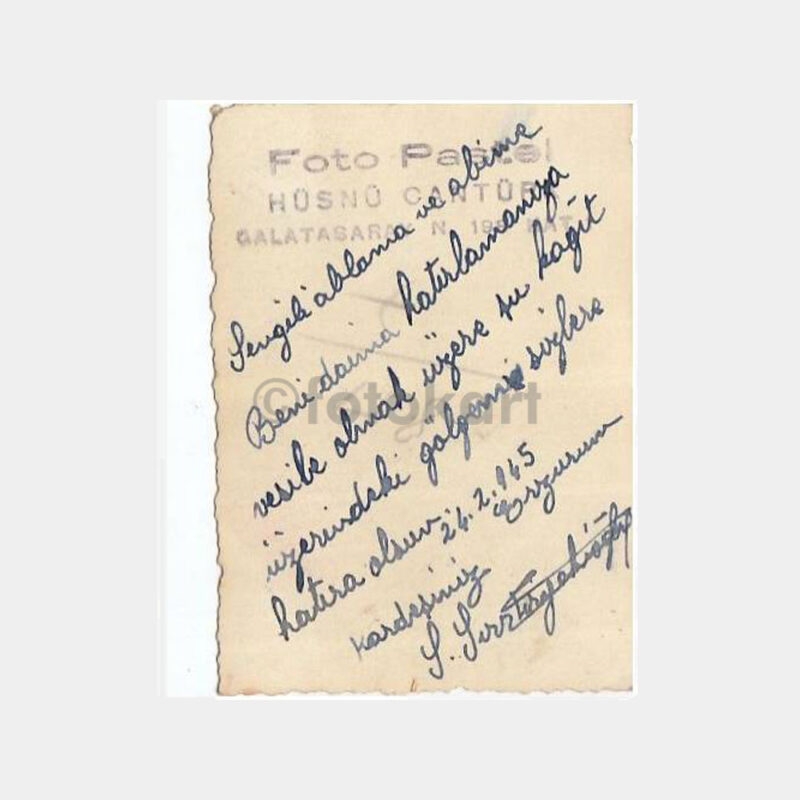 Foto Pastel
HÜSNÜ CANTÜRK
GALATASARAY N. 19 KAT
Sevgili ablama ve abime
Beni daima hatırlamanıza
vesile olmak üzere şu kağıt
üzerindeki gölgemi sizlere
hatıra olsun. 24.2.945
Erzurum
Kardeşiniz
S. Sırrı
©fotokart